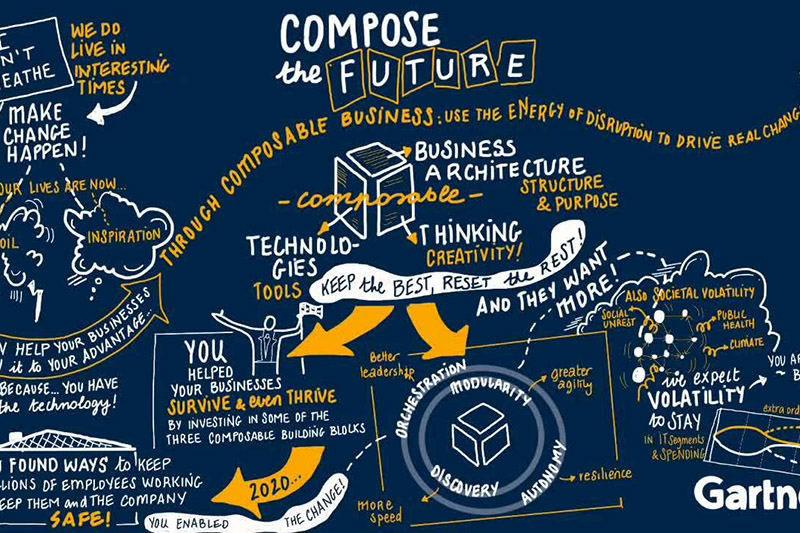 COMPOSE
the FUTURE
THROUGH COMPOSABLE BUSINESS: USE THE ENERGY OF DISRUPTION TO DRIVE REAL CHANG
N'T
EATHE
WE DO
LIVE IN
INTERESTING
TIMES
MAKE
CHANGE
HAPPEN!
OUR LIVES ARE NOW...
OIL
INSPIRATION
HELP YOUR BUSINESSES
it to YOUR ADVANTAGE...
BECAUSE... YOU HAVE
the technology!
FOUND WAYS to KEEP
LIONS OF EMPLOYEES WORKING
EEP THEM and THE COMPANY
SAFE!
BUSINESS
ARCHITECTURE
STRUCTURE
& PURPOSE
-composable-
TECHNOLO-
GIES
TOOLS
THINKING
CREATIVITY!
KEEP the BEST, RESET the REST!
AND THEY WANT
MORE!
YOU
HELPED
YOUR BUSINESSES
SURVIVE & even THRIVE
BY INVESTING IN SOME OF THE
THREE COMPOSABLE BUILDING BLOCKS
2020...
YOU ENABLED THE CHANGE!
Better
leadership
greater
agility
more
speed
resilience
ORCHESTRATION
MODULARITY
DISCOVERY
AUTONOMY
ALSO SOCIETAL VOLATILITY
SOCIAL
UNREST
PUBLIC
HEALTH
CLIMATE
we expect
VOLATILITY
to STAY
IN IT Segments
& SPENDING
YOU AR
extra ord
Gartn